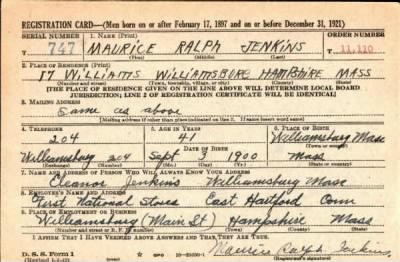 REGISTRATION CARD—(Men born on or after February 17, 1897 and on or before December 31, 1921)
SERIAL NUMBER 1. NAME (Print) ORDER NUMBER
747 MAURICE RALPH JENKINS 11,110
(First) (Middle) (Last)
2. PLACE OF RESIDENCE (Print)
17 WILLIAMS WILLIAMSBURG HAMPSHIRE MASS
(Number and street) (Town, township, village, or city) (County) (State)
[THE PLACE OF RESIDENCE GIVEN ON THE LINE ABOVE WILL DETERMINE LOCAL BOARD
JURISDICTION; LINE 2 OF REGISTRATION CERTIFICATE WILL BE IDENTICAL]
3. MAILING ADDRESS
Same as above
[Mailing address if other than place indicated on line 2. If same insert word same]
4. TELEPHONE 5. AGE IN YEARS 6. PLACE OF BIRTH
204 41 Williamsburg Mass
DATE OF BIRTH (Town or county)
Williamsburg 204 Sept 9 1900 Mass
(Exchange) (Number) (Mo.) (Day) (Yr.) (State or country)
7. NAME AND ADDRESS OF PERSON WHO WILL ALWAYS KNOW YOUR ADDRESS
Eleanor Jenkins Williamsburg Mass
8. EMPLOYER'S NAME AND ADDRESS
First National Stores East Hartford Conn
9. PLACE OF EMPLOYMENT OR BUSINESS
Williamsburg (Main St) Hampshire Mass
(Number and street or R. F. D. number) (Town) (County) (State)
I AFFIRM THAT I HAVE VERIFIED ABOVE ANSWERS AND THAT THEY ARE TRUE.
D. S. S. Form 1 GPO Maurice Ralph Jenkins
(Registrant's signature)